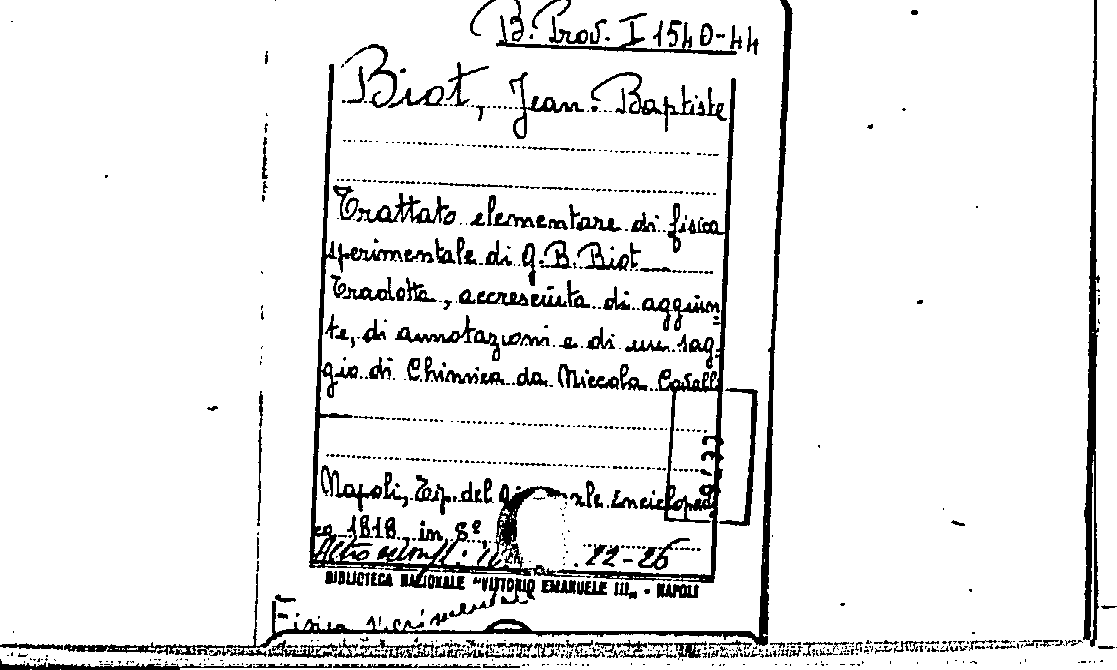 B. Prov. I 1540-44
Biot, Jean-Baptiste
Trattato elementare di fisica
sperimentale di G.B. Biot
Tradotta, accresciuta di aggiun=
te, di annotazioni e di un sag-
gio di Chimica da Niccola Covelli
Napoli, Tip. del Enciclopedi
co 1818, in 8º
22-26
BIBLIOTECA NAZIONALE "VITTORIO EMANUELE III" - NAPOLI
Fisica